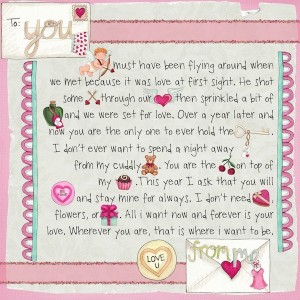 To:
you
must have been flying around when
we met because it was love at first sight. He shot
some through our then sprinkled a bit of
and we were set for love. Over a year later and
now you are the only one to ever hold the
I don't ever want to spend a night away
from my cuddly . You are the on top of
my . This year I ask that you will
and stay mine for always. I don't need
flowers, or . All i want now and forever is your
love. Wherever you are, that is where i want to be.
LOVE
U
from me